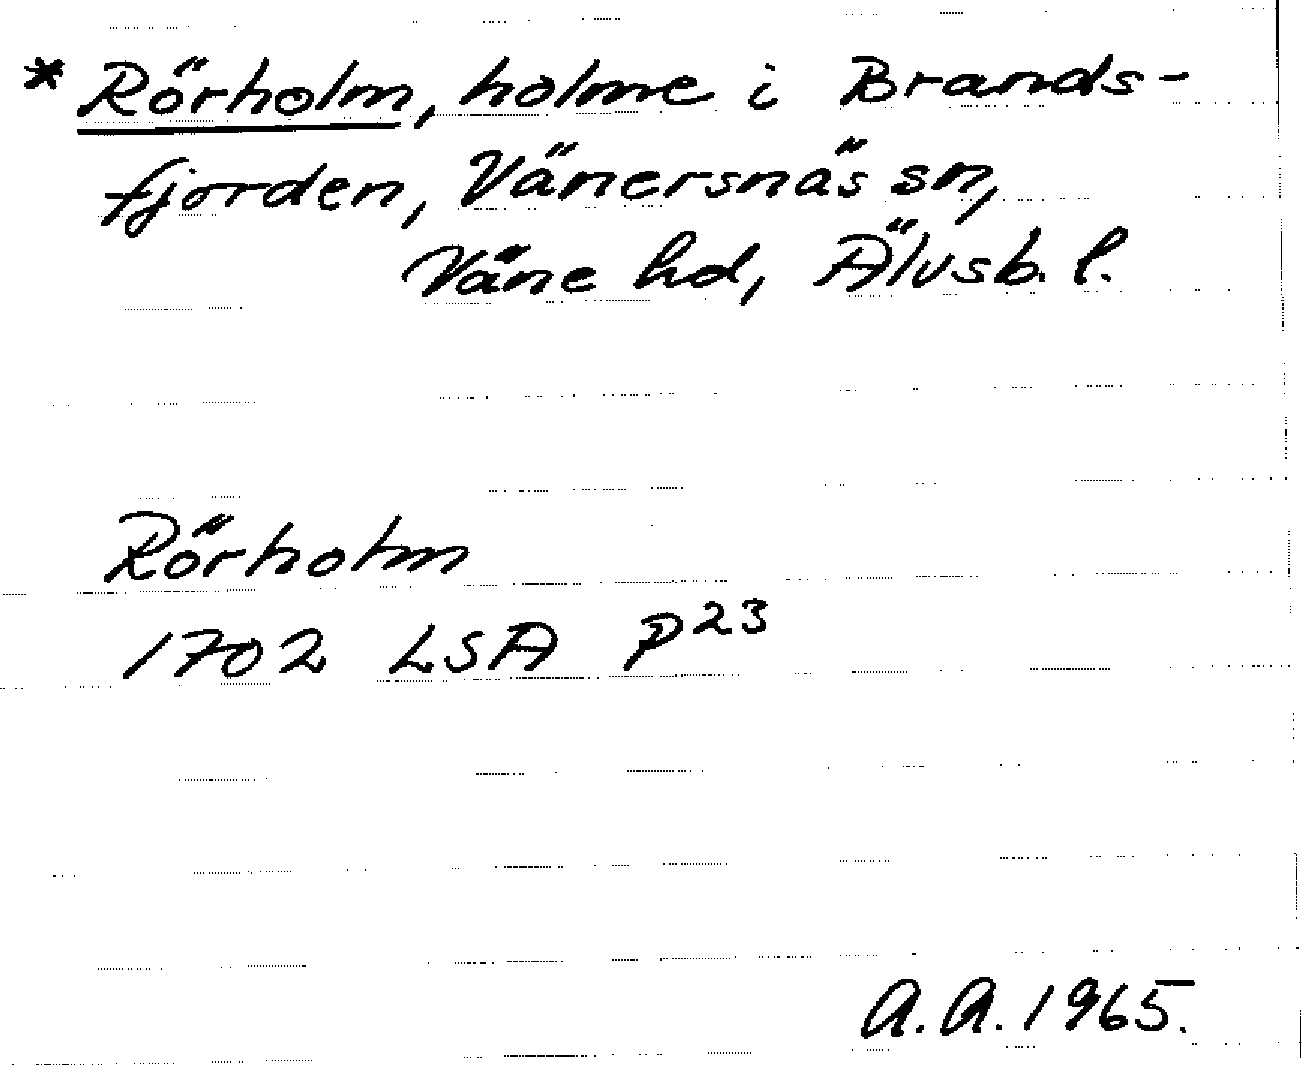 * Rörholm, holme i Brands-
fjorden, Vänersnäs sn,
Väne hd, Älvsb. l.
Rörholm
1702 LSA P23
A.A. 1965.